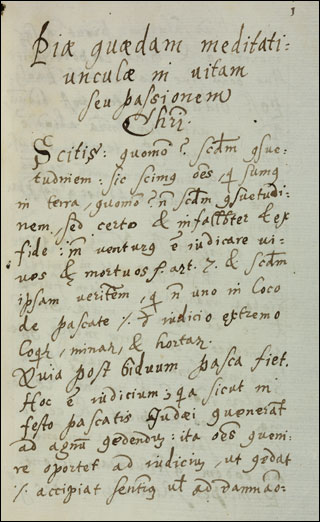 1
Piæ quædam meditati:
unculæ in uitam
seu passionem
Chri:
Scitis: quomo ? scđm gsue-
tudinem: sic scimq oēs, q sumq
in terra, quomo ? n scđm gsuetudi-
nem, sed certo & infallbter & ex
fide: in venturq ē iudicare ui-
uos & mortuos f. art. 7. & scđm
ipsam veritēm, q n uno in loco
de pascate iudicio extremo
Cogr, minar, & hortar.
Quia post biduum pasca fiet.
Hoc ē iudicium; qa sicut in
festo pascatis Judæi quenerant
ad agnu gedendum: ita oēs queni-
re oportet ad iudicium, ut gedat
accipiat sentiq ul ad damnao-